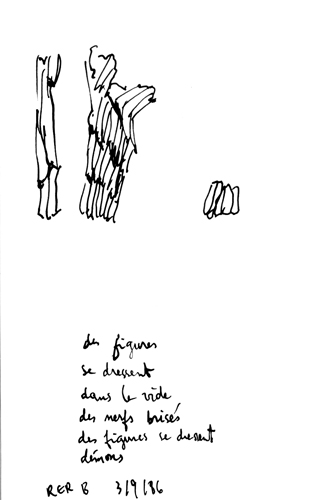 des figures
se dressent
dans le vide
des nerfs brisés
des figures se dressent
démons
RER B 3/9/86